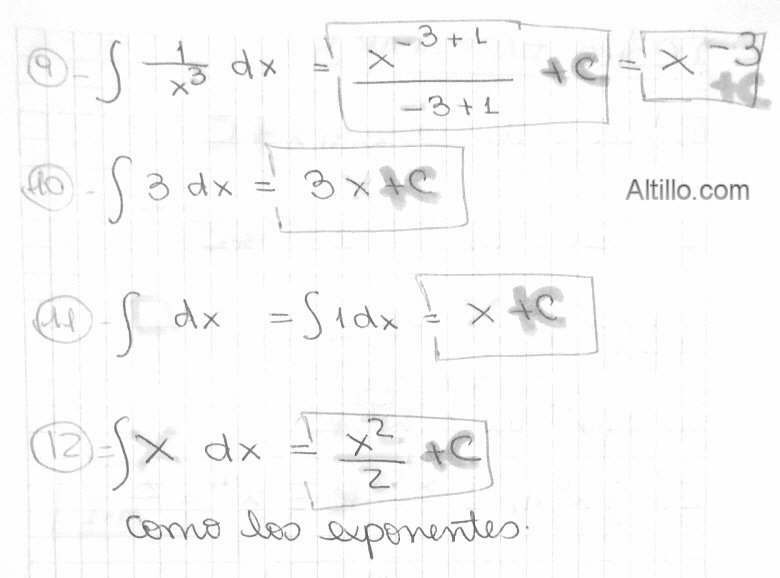 9 - ∫ 1/x³ dx = x^(-3+1)/(-3+1) + C = x^(-3) + C
10 - ∫ 3 dx = 3x + C
Altillo.com
11 - ∫ dx = ∫ 1 dx = x + C
12 = ∫ x dx = x²/2 + C
como los exponentes.